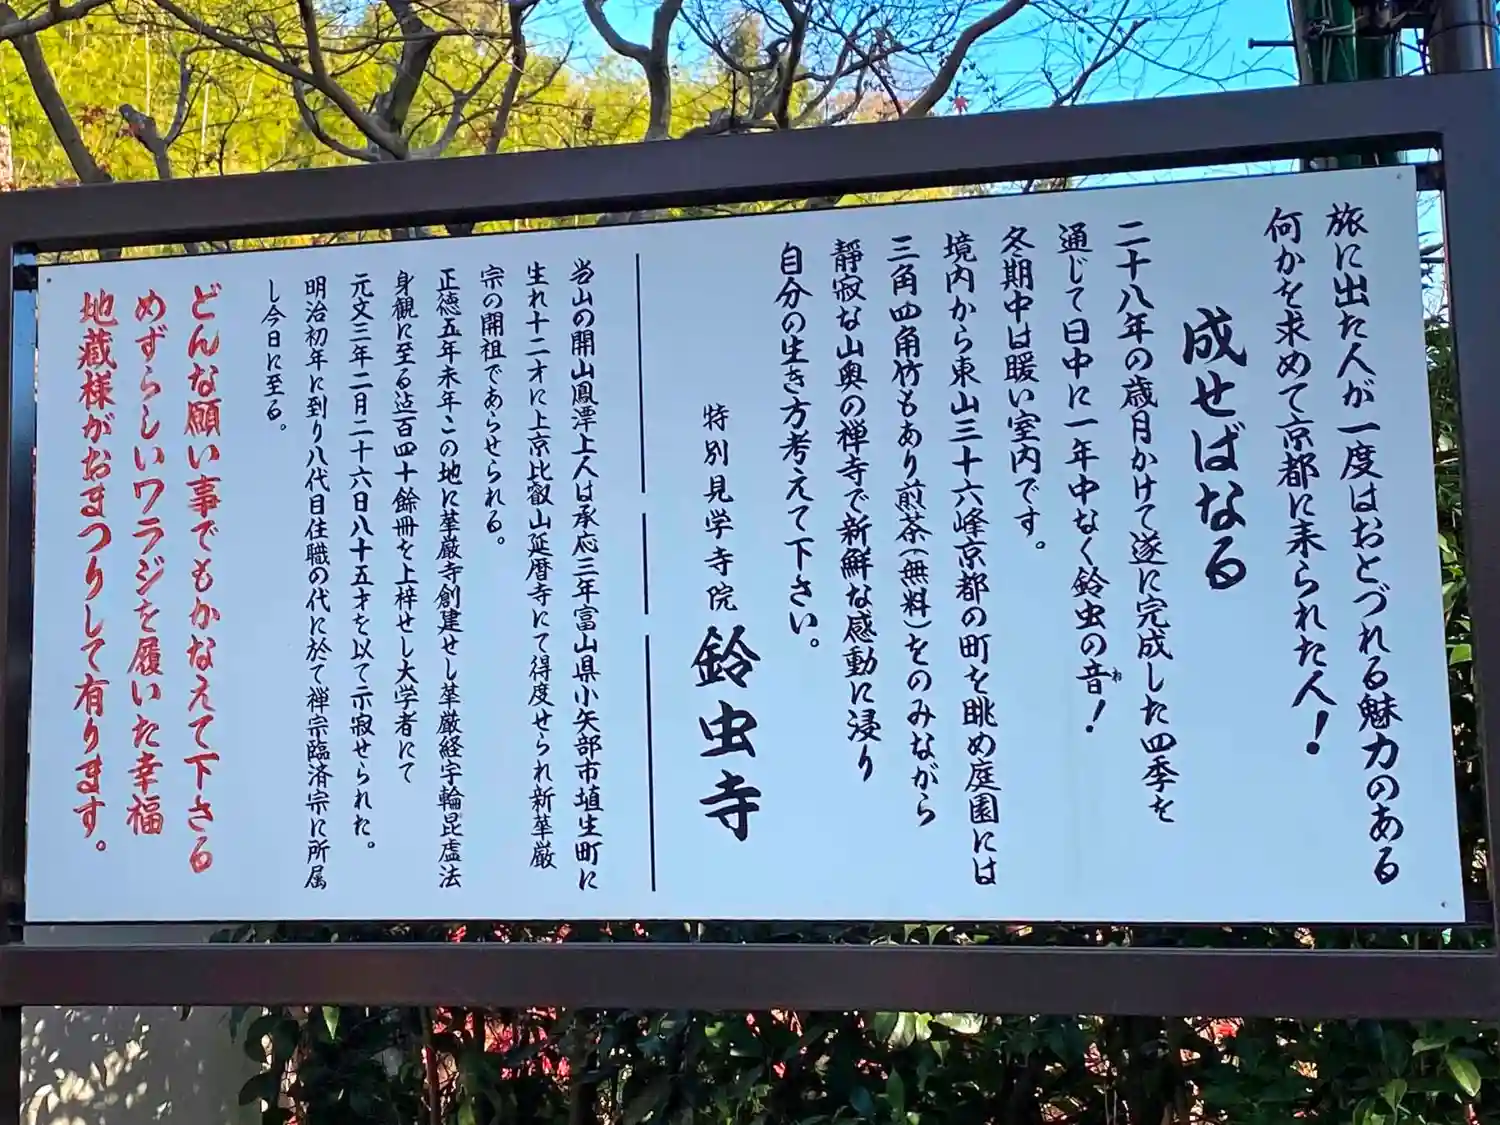 旅に出た人が一度はおとづれる魅力のある
何かを求めて京都に来られた人！
成せばなる
二十八年の歳月かけて遂に完成した四季を
通じて日中に一年中なく鈴虫の音！
ね
冬期中は暖い室内です。
境内から東山三十六峰京都の町を眺め庭園には
三角四角竹もあり煎茶（無料）をのみながら
静寂な山奥の禅寺で新鮮な感動に浸り
自分の生き方考えて下さい。
特別見学寺院 鈴虫寺
当山の開山鳳潭上人は承応三年富山県小矢部市埴生町に
生れ十二才に上京比叡山延暦寺にて得度せられ新華厳
宗の開祖であらせられる。
正徳五年未年この地に華厳寺創建せし華厳経宇輪毘盧法
身観に至る迄百四十餘冊を上梓せし大学者にて
元文三年二月二十六日八十五才を以て示寂せられた。
明治初年に到り八代目住職の代に於て禅宗臨済宗に所属
し今日に至る。
どんな願い事でもかなえて下さる
めずらしいワラジを履いた幸福
地蔵様がおまつりして有ります。